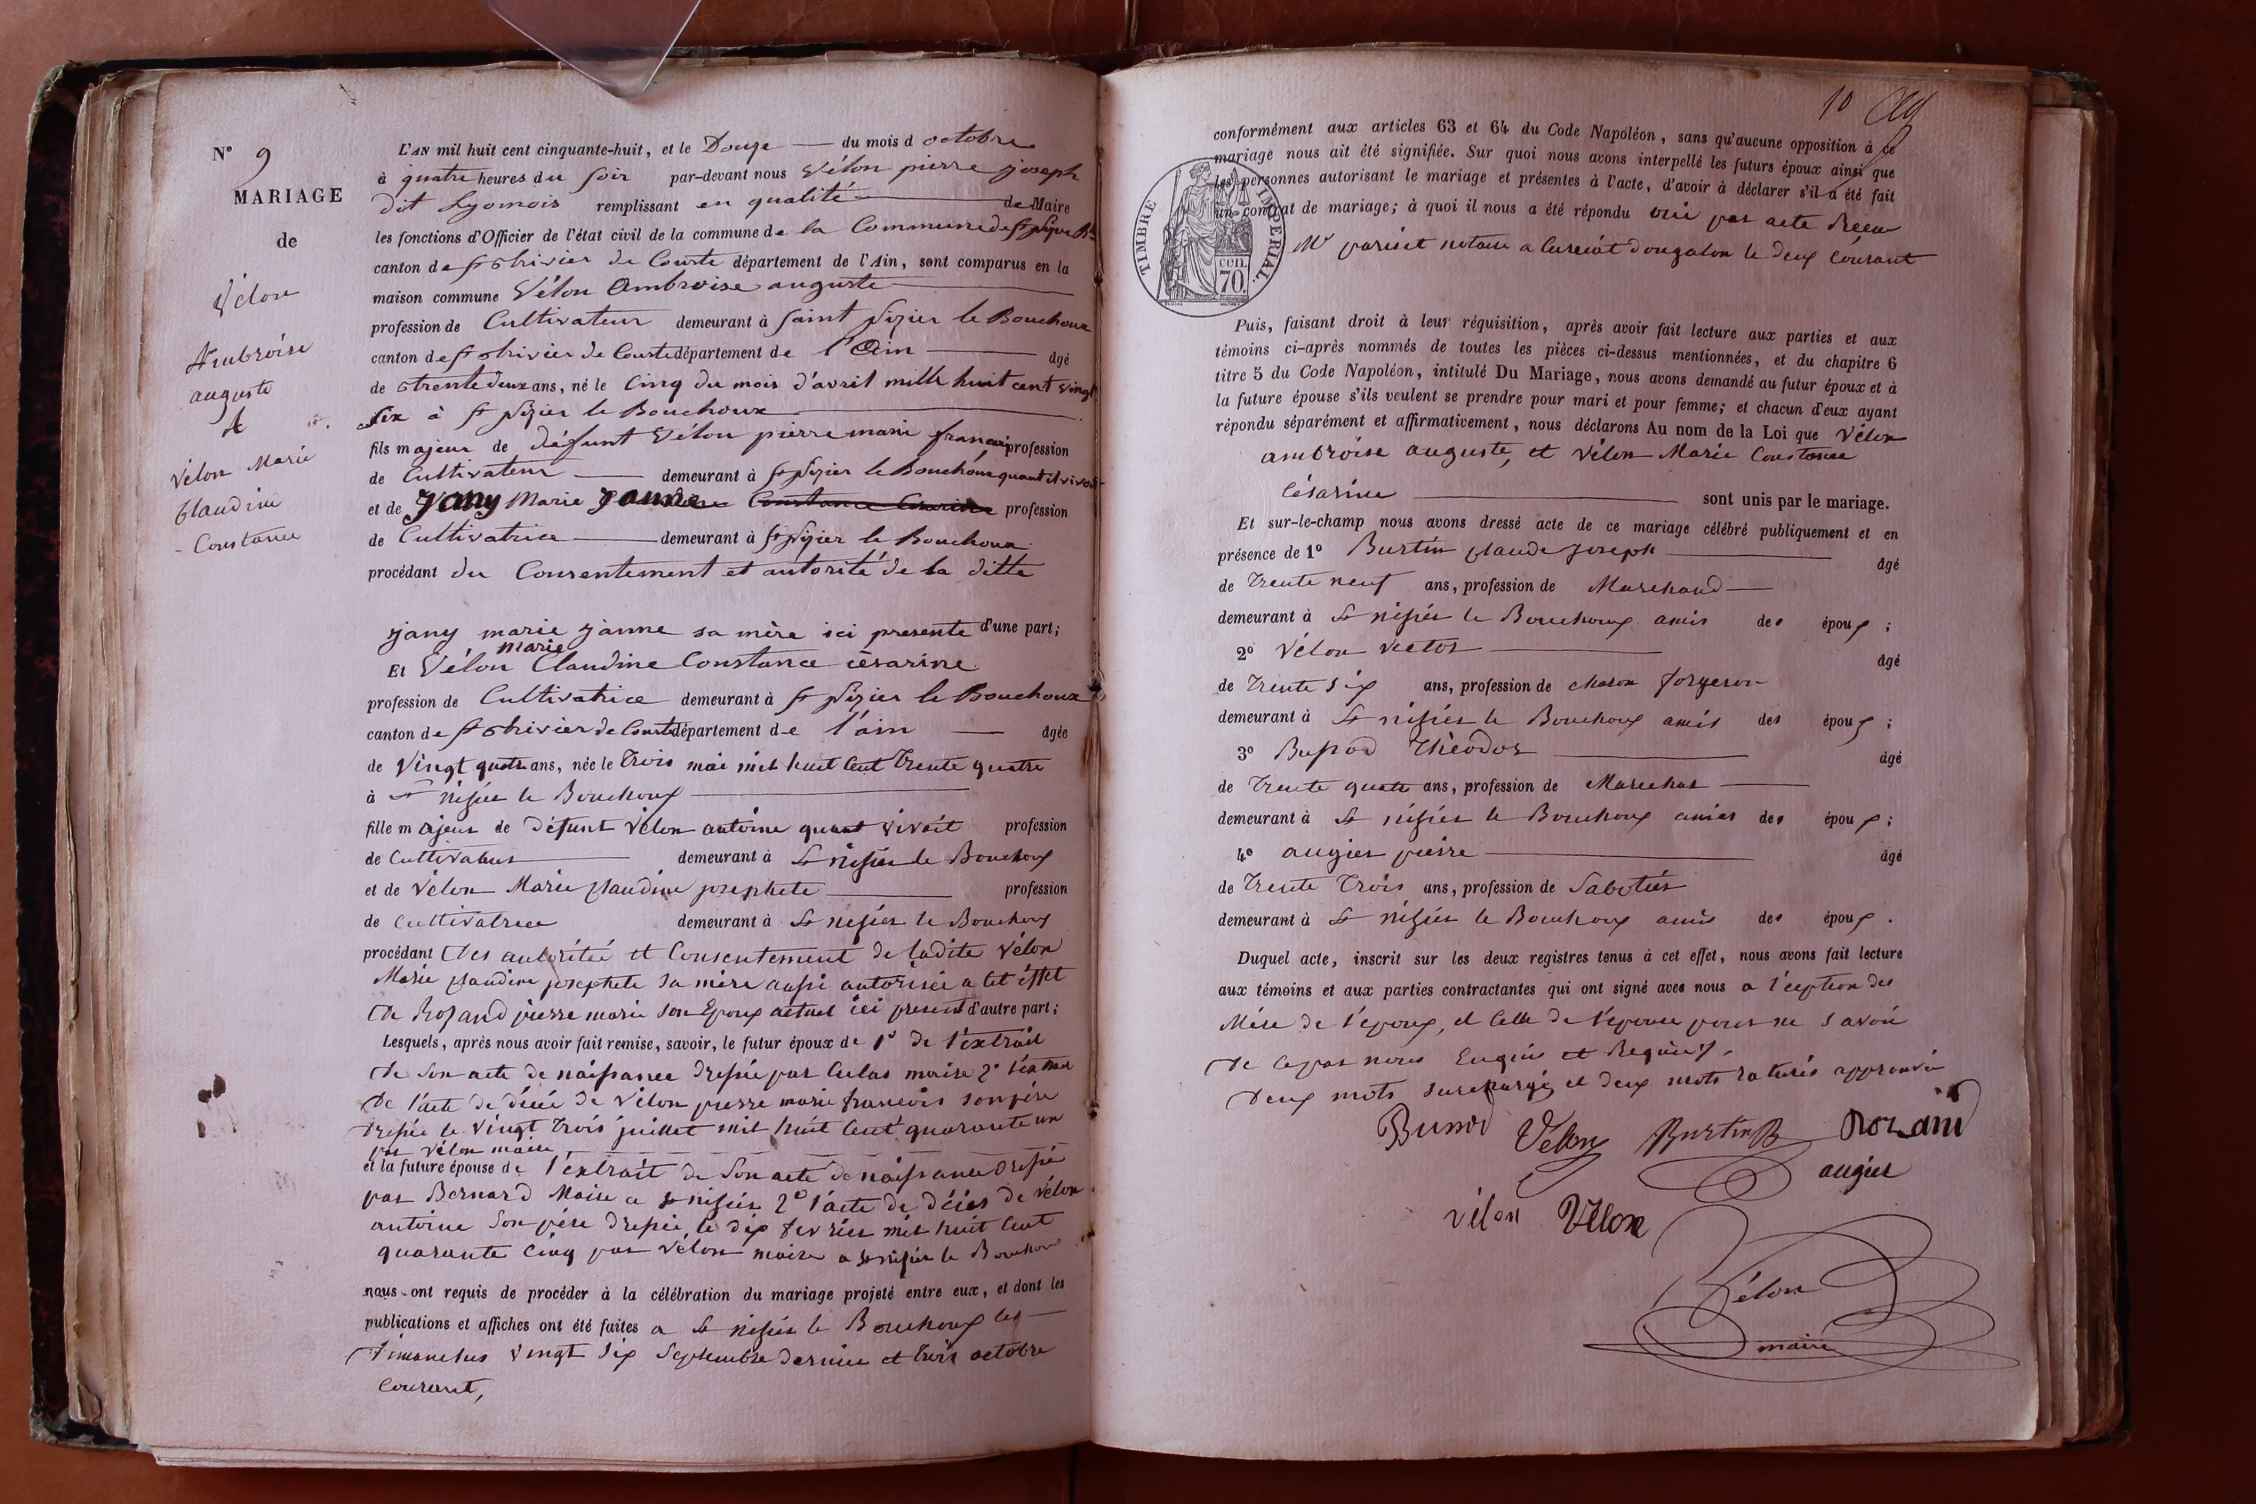 N° 9
MARIAGE
de
Vélon
Ambroise
auguste
et
Vélon Marie
Claudine
Constance
L'AN mil huit cent cinquante-huit, et le Douze du mois d octobre
à quatre heures du Soir par-devant nous Vélon pierre joseph
dit Lyonnois remplissant en qualité de Maire
les fonctions d'Officier de l'état civil de la commune de la Commune de
canton de St trivier de Courte département de l'Ain, sont comparus en la
maison commune Vélon Ambroise auguste
profession de Cultivateur demeurant à Saint Nizier le Bouchoux
canton de St trivier de Courte département de l'Ain âgé
de trente deux ans, né le Cinq du mois d'avril mille huit cent vingt
six à St Nizier le Bouchoux
fils majeur de défunt Vélon pierre marie françois profession
de Cultivateur demeurant à St Nizier le Bouchoux quant il vivoit
et de Jany Marie Janne Constance Cesarine profession
de Cultivatrice demeurant à St Nizier le Bouchoux
procédant du Consentement et autorité de la ditte
Jany marie Janne sa mère ici presente d'une part;
marie
Et Vélon Claudine Constance césarine
profession de Cultivatrice demeurant à St Nizier le Bouchoux
canton de St trivier de Courte département de l'ain âgée
de Vingt quatre ans, née le trois mai mil huit Cent Trente quatre
à St nisier le Bouchoux
fille majeur de défunt Vélon antoine quant vivoit profession
de Cultivateur demeurant à St nisier le Bouchoux
et de Vélon Marie Claudine josephete profession
de Cultivatrice demeurant à St nisier le Bouchoux
procédant des autoritée et Consentement de ladite Vélon
Marie Claudine josephete sa mère aussi autorisée a cet éffet
de Rozand pierre marie son Epoux actuel ici present d'autre part;
Lesquels, après nous avoir fait remise, savoir, le futur époux de 1° de l'éxtrait
de son acte de naissance dressée par Culas maire 2° l'éxtrait
de l'acte de décée de Vélon pierre marie francois son père
dressée le Vingt trois juillet mil huit Cent quarante un
par Vélon maire
et la future épouse de l'éxtrait de son acte de naissance dressée
par Bernard Maire a St nisier 2° l'acte de décès de Vélon
antoine son père dressée le dix fevrier mil huit Cent
quarante cinq par Vélon maire a St nisier le Bouchoux
nous ont requis de procéder à la célébration du mariage projeté entre eux, et dont les
publications et affiches ont été faites a St nisier le Bouchoux les
dimanches Vingt Six Septembre dernier et trois octobre
Courant,
10
conformément aux articles 63 et 64 du Code Napoléon, sans qu'aucune opposition à ce
mariage nous ait été signifiée. Sur quoi nous avons interpellé les futurs époux ainsi que
les personnes autorisant le mariage et présentes à l'acte, d'avoir à déclarer s'il a été fait
un contrat de mariage; à quoi il nous a été répondu oui par acte Recu
Mr pariset notaire a Curciat dongalon le deux Courant
TIMBRE IMPÉRIAL
cen.
70.
Puis, faisant droit à leur réquisition, après avoir fait lecture aux parties et aux
témoins ci-après nommés de toutes les pièces ci-dessus mentionnées, et du chapitre 6
titre 5 du Code Napoléon, intitulé Du Mariage, nous avons demandé au futur époux et à
la future épouse s'ils veulent se prendre pour mari et pour femme; et chacun d'eux ayant
répondu séparément et affirmativement, nous déclarons Au nom de la Loi que Vélon
ambroise auguste, et Vélon Marie Constance
Césarine sont unis par le mariage.
Et sur-le-champ nous avons dressé acte de ce mariage célébré publiquement et en
présence de 1° Burtin Claude Joseph âgé
de Trente neuf ans, profession de Marchand
demeurant à St nisier le Bouchoux amis des époux;
2° Vélon Victor âgé
de Trente six ans, profession de charon forgeron
demeurant à St nisier le Bouchoux amis des époux;
3° Bussod Théodor âgé
de Trente quatre ans, profession de Marechal
demeurant à St nisier le Bouchoux amies des époux;
4° augier pierre âgé
de Trente Trois ans, profession de Sabotier
demeurant à St nisier le Bouchoux amis des époux.
Duquel acte, inscrit sur les deux registres tenus à cet effet, nous avons fait lecture
aux témoins et aux parties contractantes qui ont signé avec nous a l'éception des
Mère de l'époux, et Celle de l'épouse pour ne savoir
de ce par nous Enquis et Requis.
Deux mots surchargé et deux mots raturés approuvé
Bussod Vélon Burtin Rozand
augier
vélon Vélon
Vélon
maire